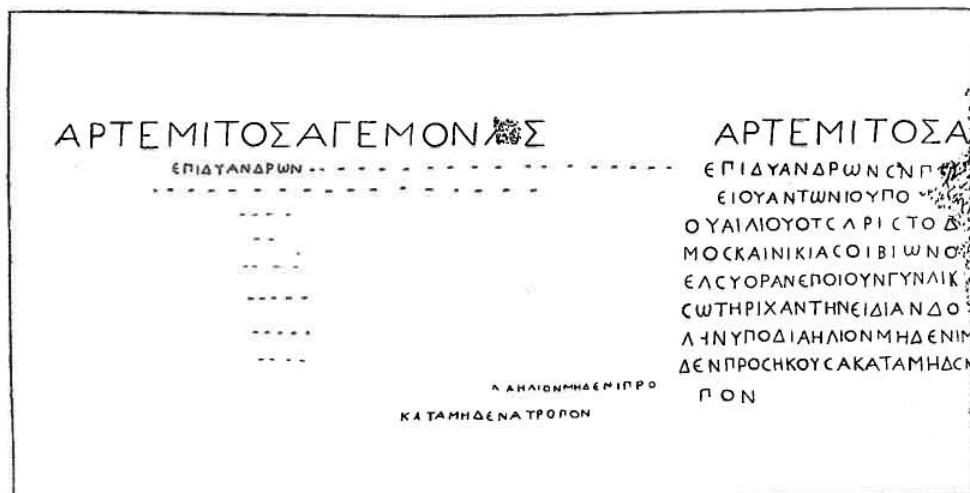 ΑΡΤΕΜΙΤΟΣΑΓΕΜΟΝ Σ
ΕΠΙΔΥΑΝΔΡΩΝ
ΛΑΗΛΙΟΝΜΗΔΕΝΙΠΡΟ
ΚΑΤΑΜΗΔΕΝΑΤΡΟΠΟΝ
ΑΡΤΕΜΙΤΟΣΑ
ΕΠΙΔΥΑΝΔΡΩΝϹΝΠ
ΕΙΟΥΑΝΤΩΝΙΟΥΠΟ
ΟΥΑΙΛΙΟΥΟΤϹΑΡΙϹΤΟΔ
ΜΟϹΚΑΙΝΙΚΙΑϹΟΙΒΙΩΝΟ
ΕΛϹΥΟΡΑΝΕΠΟΙΟΥΝΓΥΝΛΙΚ
ϹΩΤΗΡΙΧΑΝΤΗΝΕΙΔΙΑΝΔΟ
ΛΗΝΥΠΟΔΙΑΗΛΙΟΝΜΗΔΕΝΙΜ
ΔΕΝΠΡΟϹΗΚΟΥϹΑΚΑΤΑΜΗΔϹΝ
ΠΟΝ